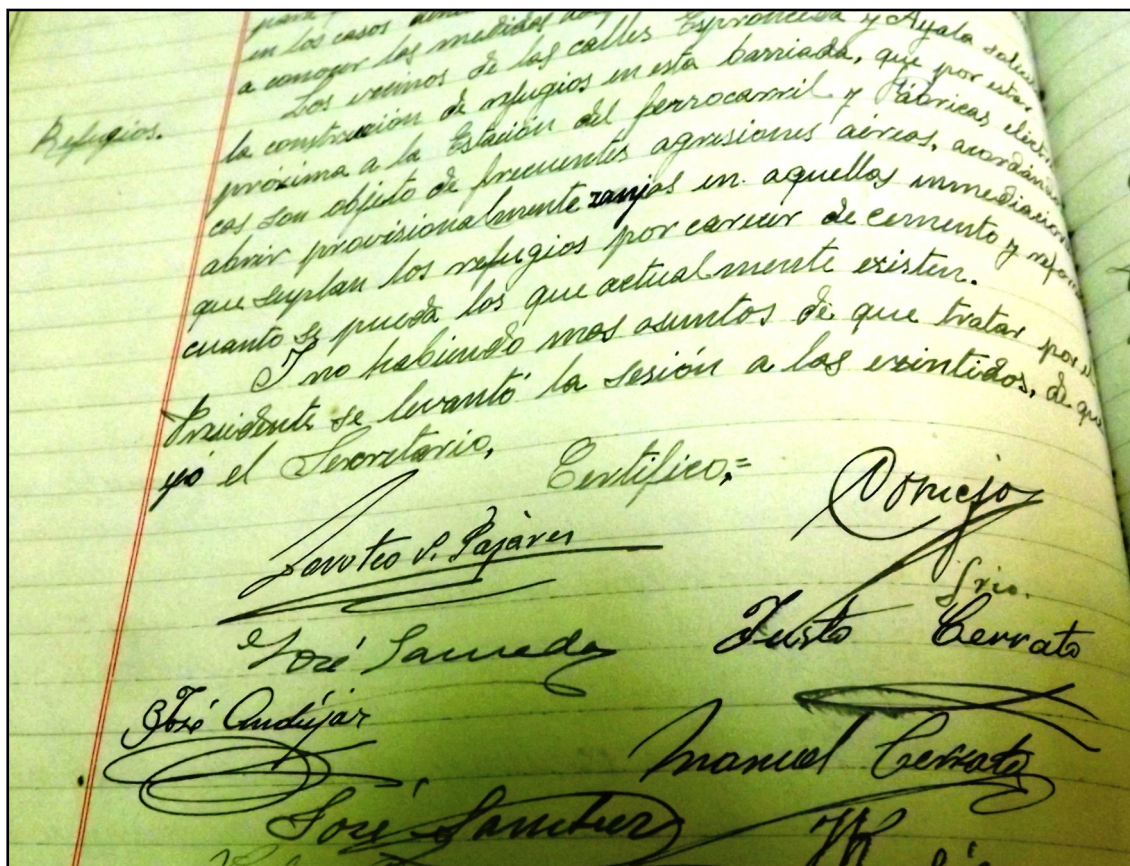 en los casos
a conocer las medidas
Los vecinos de las calles Espronceda y Ayala
Refugios.
la construcción de refugios en esta barriada, que por estar
próxima a la Estación del ferrocarril y Fábricas eléctri-
cas son objeto de frecuentes agresiones aéreas, acordán
abrir provisionalmente zanjas en aquellas inmediacion
que suplan los refugios por carecer de cemento y
cuanto se pueda los que actualmente existen.
Y no habiendo mas asuntos de que tratar por
Presidente se levantó la sesión a las veintidos, de que
yo el Secretario,
Certifico,=
Conejo
P. Pajares
Srio.
José
Justo Cerrato
José Andújar
Manuel Cerrato
José